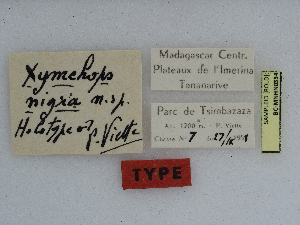 Xymchops
nigra n.sp.
Holotype ♂ P. Viette
Madagascar Centr.
Plateaux de l'Imerina
Tananarive
Parc de Tsimbazaza
Alt. 1200 m. - P. Viette
Chasse N° 7
TYPE
SAMPLED (BOLD)